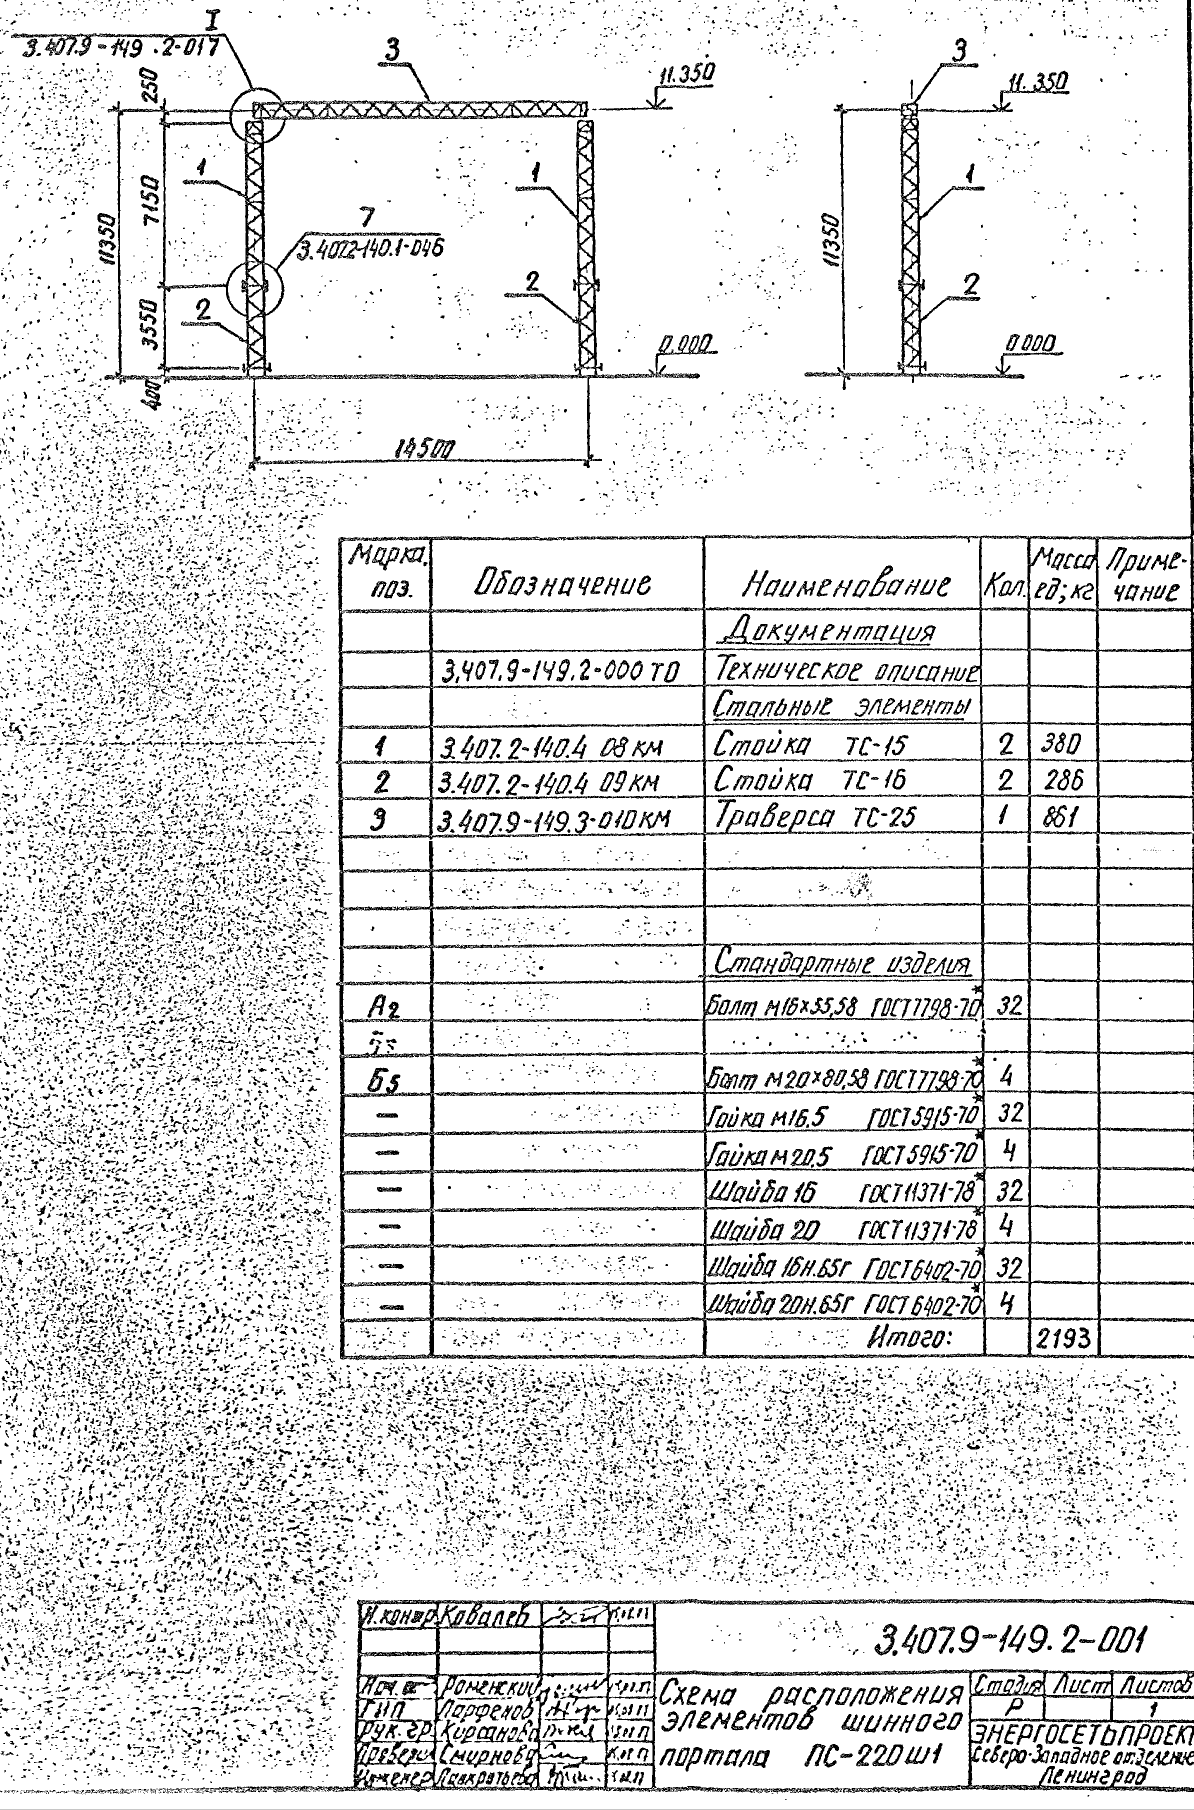 I
3.407.9-149.2-017
3
11.350
3
11.350
250
1
1
1
7150
11350
11350
7
3.407.2-140.1-046
2
2
2
3550
0.000
0.000
400
14500
Марка, поз. Обозначение Наименование Кол. Масса ед; кг Приме-чание
Документация
3.407.9-149.2-000 ТО Техническое описание
Стальные элементы
1 3.407.2-140.4 08 КМ Стойка ТС-15 2 380
2 3.407.2-140.4 09 КМ Стойка ТС-16 2 286
3 3.407.9-149.3-010 КМ Траверса ТС-25 1 861
Стандартные изделия
А2 Болт М16×55,58 ГОСТ 7798-70* 32
Б5 Болт М20×80,58 ГОСТ 7798-70* 4
— Гайка М16,5 ГОСТ 5915-70* 32
— Гайка М20,5 ГОСТ 5915-70* 4
— Шайба 16 ГОСТ 11371-78* 32
— Шайба 20 ГОСТ 11371-78* 4
— Шайба 16Н.65Г ГОСТ 6402-70* 32
— Шайба 20Н.65Г ГОСТ 6402-70* 4
Итого: 2193
Н.контр Ковалев
3.407.9-149.2-001
Нач. Роменский
ГИП Парфенов
Рук.гр. Кирсанова
Проверил Смирнова
Инженер Панкратьева
Схема расположения
элементов шинного
портала ПС-220Ш1
Стадия Лист Листов
Р 1
ЭНЕРГОСЕТЬПРОЕКТ
Северо-Западное отделение
Ленинград